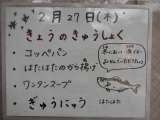 2月27日(木)
きょうのきゅうしょく
・コッペパン
・はたはたのから揚げ
・ワンタンスープ
・ぎゅうにゅう
はたはた